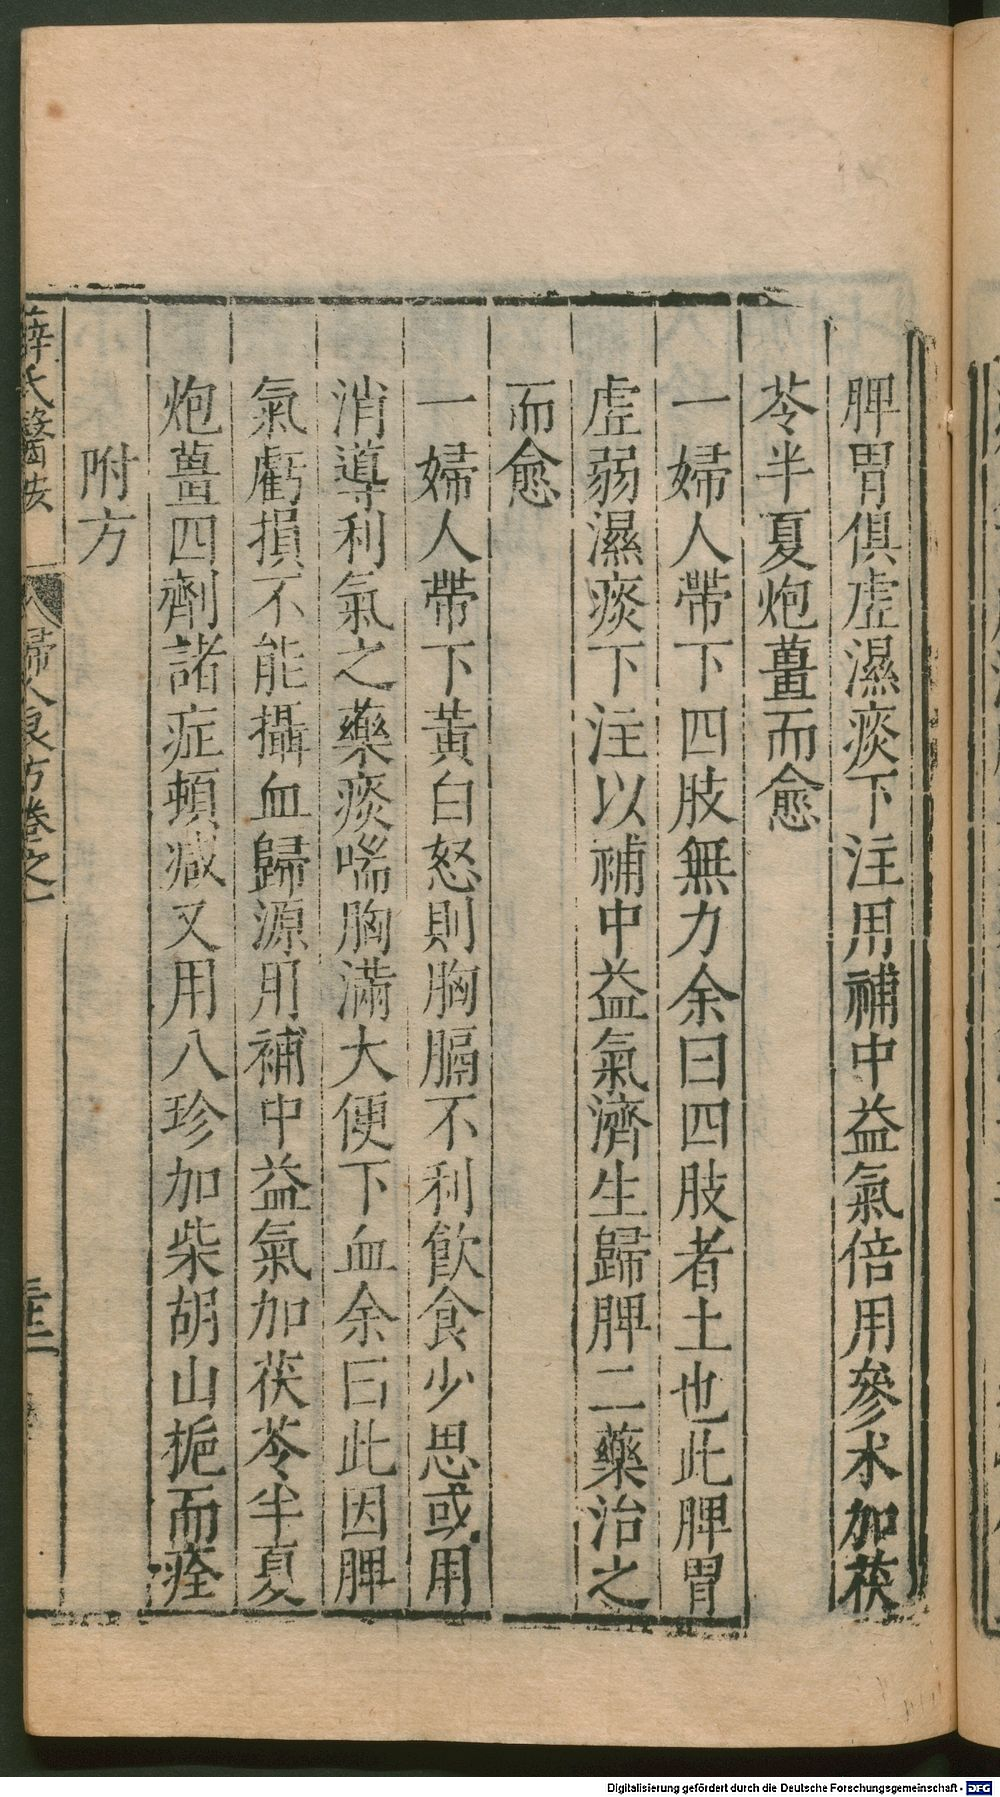 脾胃俱虛濕痰下注用補中益氣倍用參朮加茯
苓半夏炮薑而愈
一婦人帶下四肢無力余曰四肢者土也此脾胃
虛弱濕痰下注以補中益氣濟生歸脾二藥治之
而愈
一婦人帶下黃白怒則胸膈不利飲食少思或用
消導利氣之藥痰喘胸滿大便下血余曰此因脾
氣虧損不能攝血歸源用補中益氣加茯苓半夏
炮薑四劑諸症頓減又用八珍加柴胡山梔而痊
附方
薛氏醫按
婦人良方卷之一
Digitalisierung gefördert durch die Deutsche Forschungsgemeinschaft - DFG